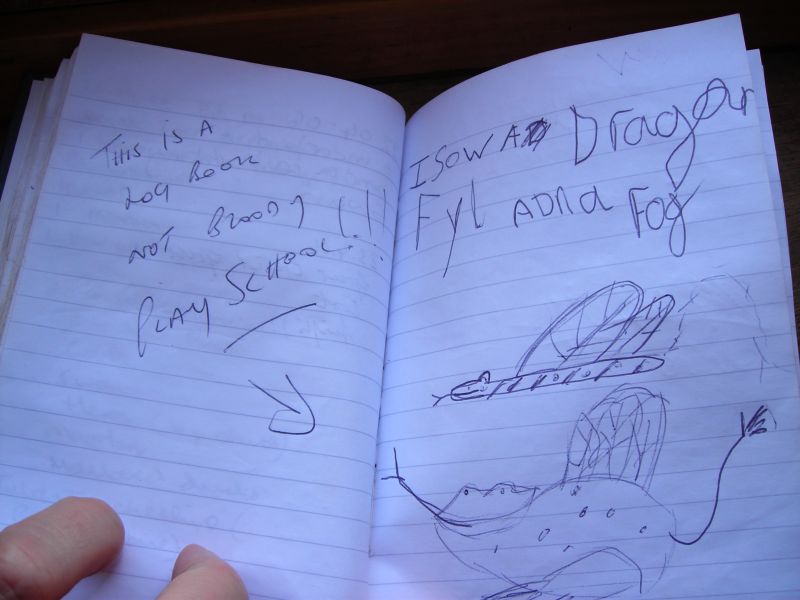 THIS IS A
LOG BOOK
NOT BLOODY
PLAY SCHOOL!!!
I SOW A Dragan
Fyl ADNa Fog